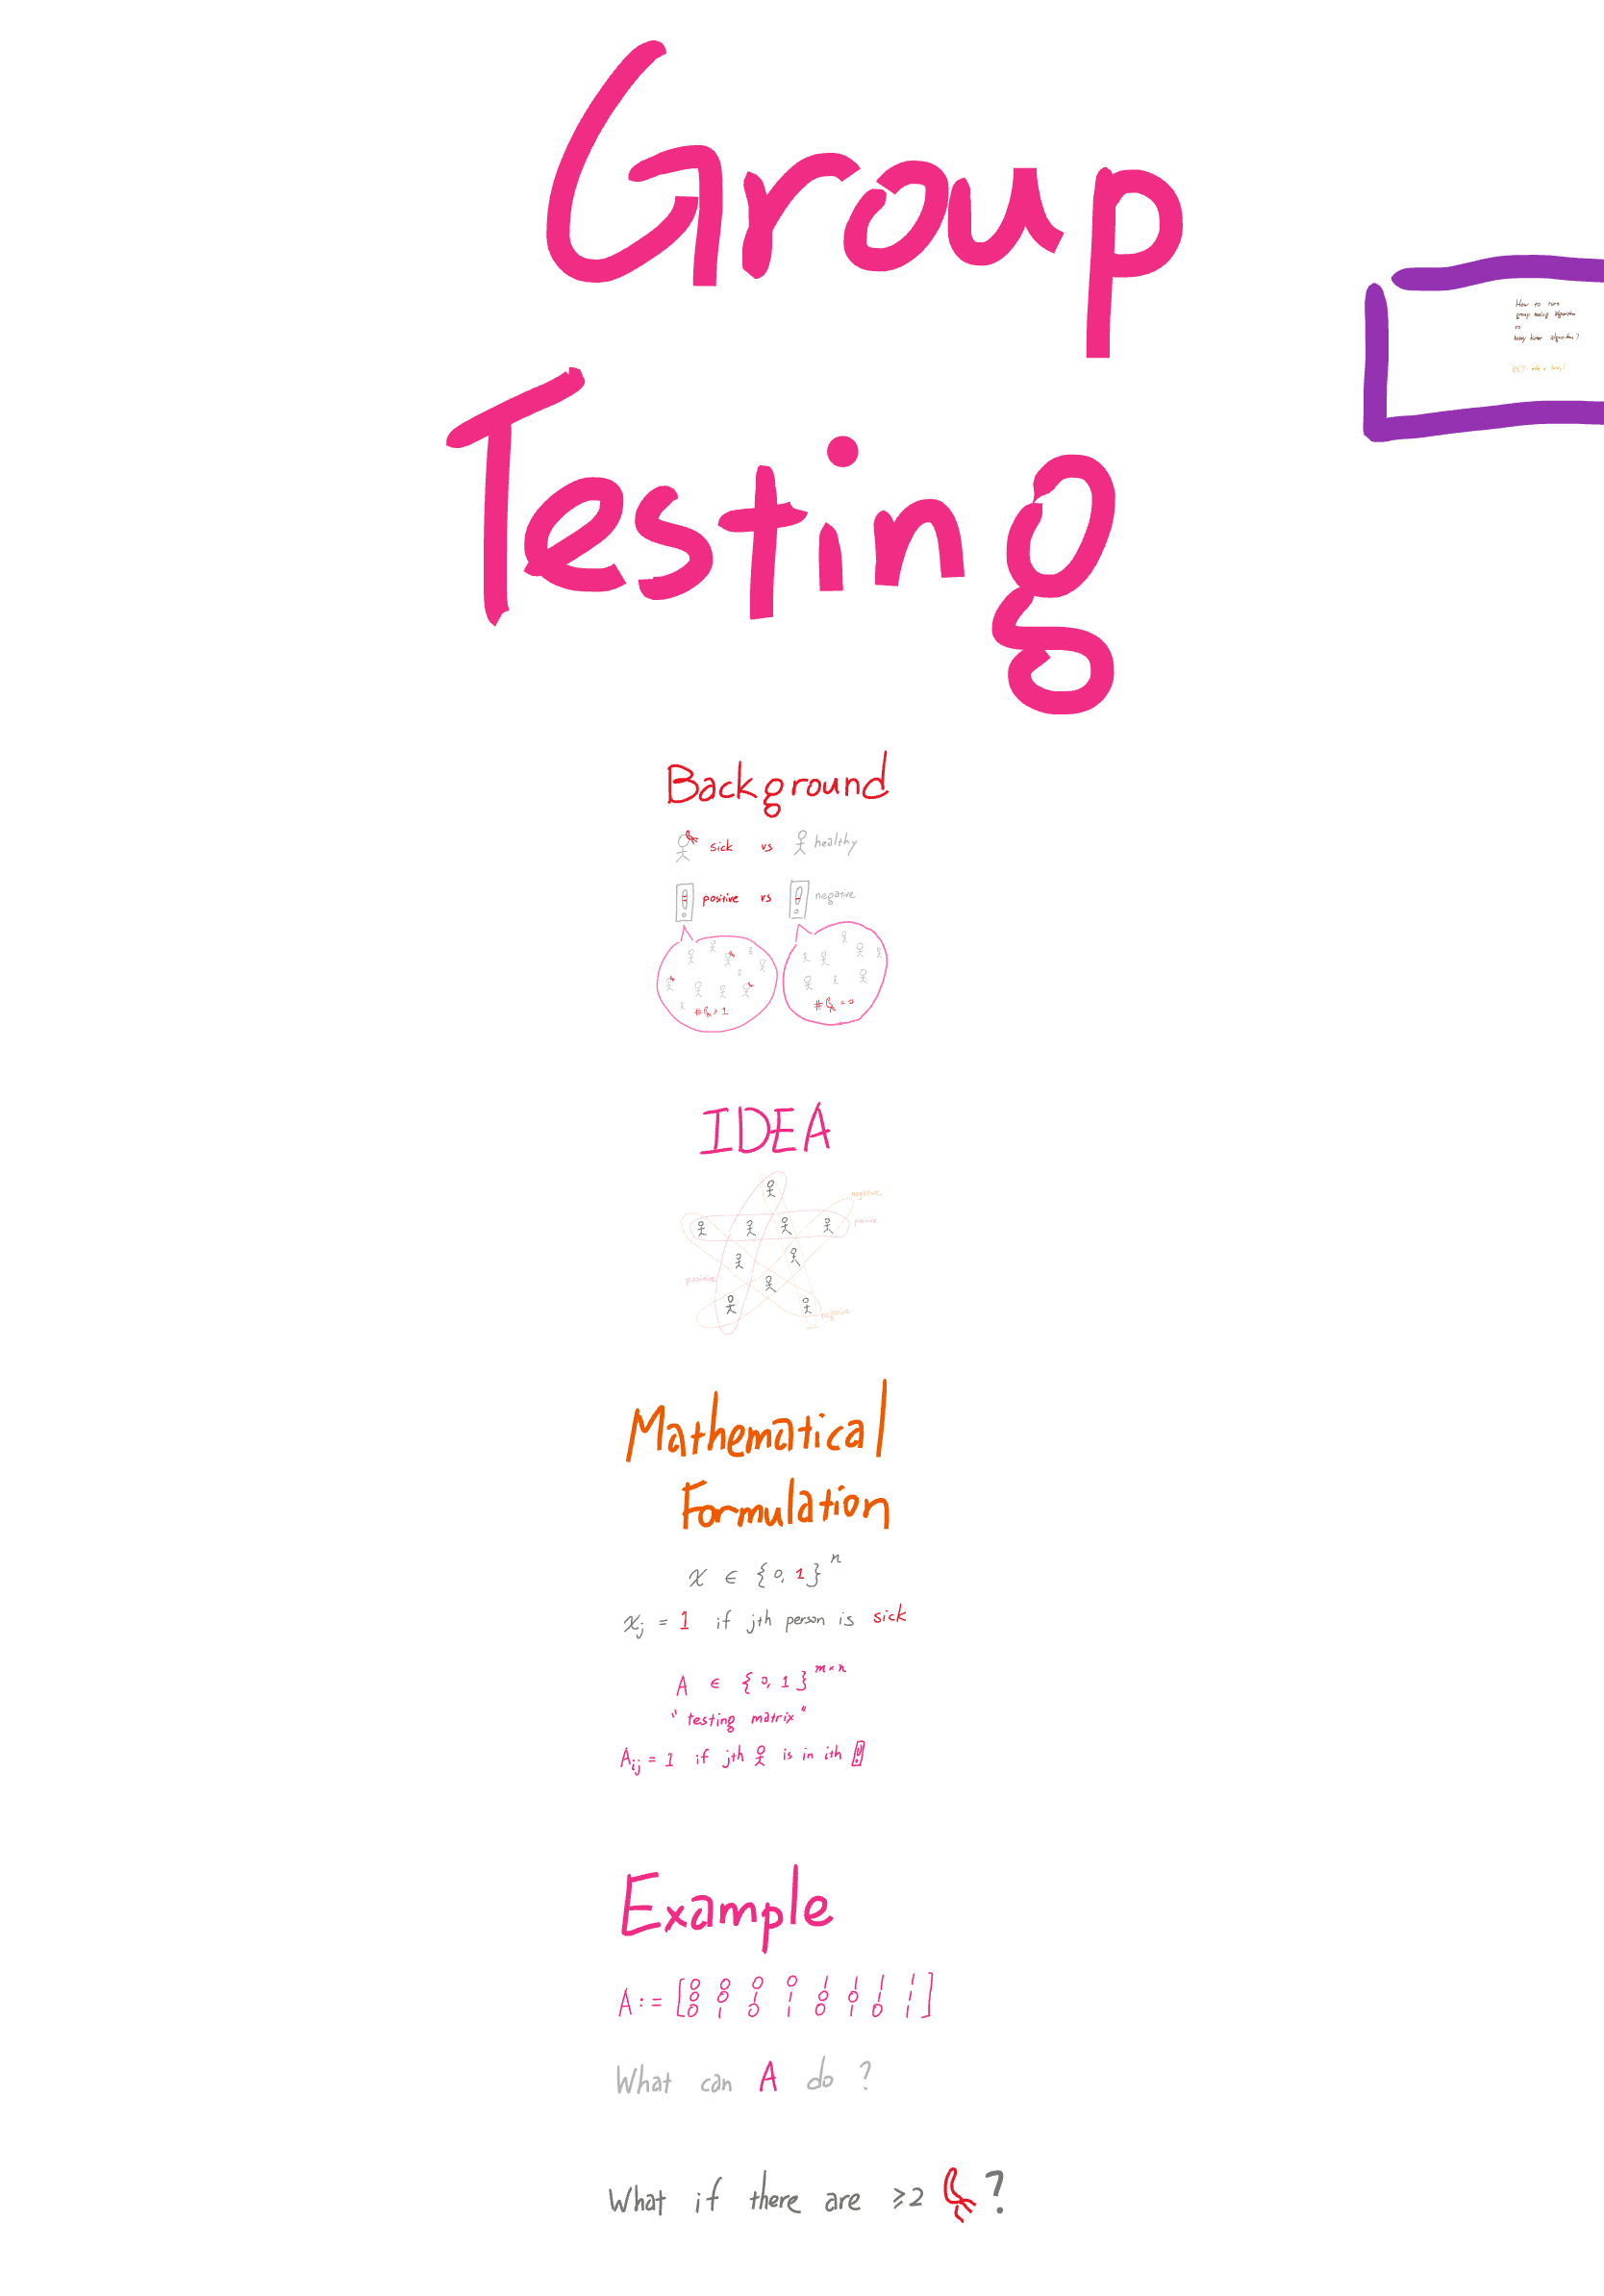 Group
Testing
How to turn
group testing algorithm
to
heavy hitter algorithm?
Background
sick vs healthy
positive vs negative
# ≥ 1
# = 0
IDEA
negative
positive
positive
negative
Mathematical
Formulation
x ∈ {0, 1}^n
x_j = 1 if jth person is sick
A ∈ {0, 1}^{m×n}
"testing matrix"
A_ij = 1 if jth is in ith
Example
A := [0 0 0 0 1 1 1 1
0 0 1 1 0 0 1 1
0 1 0 1 0 1 0 1]
What can A do ?
What if there are ≥2 ?